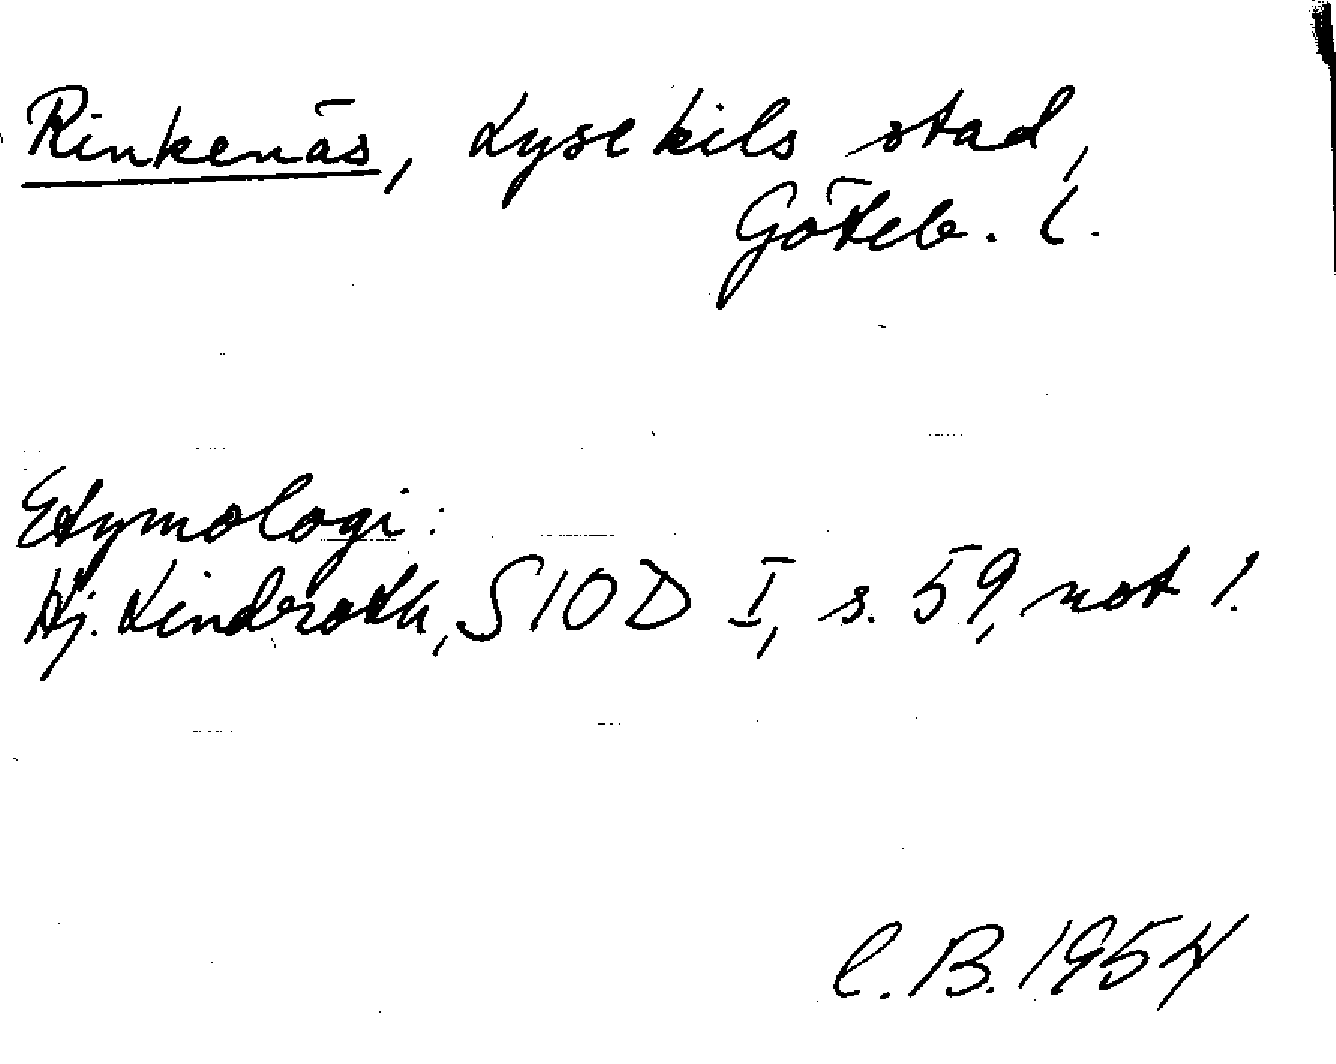 Rinkenäs, Lysekils stad,
Göteb. l.
Etymologi:
Hj. Lindroth, SIOD I, s. 59, not 1.
C.B. 1954